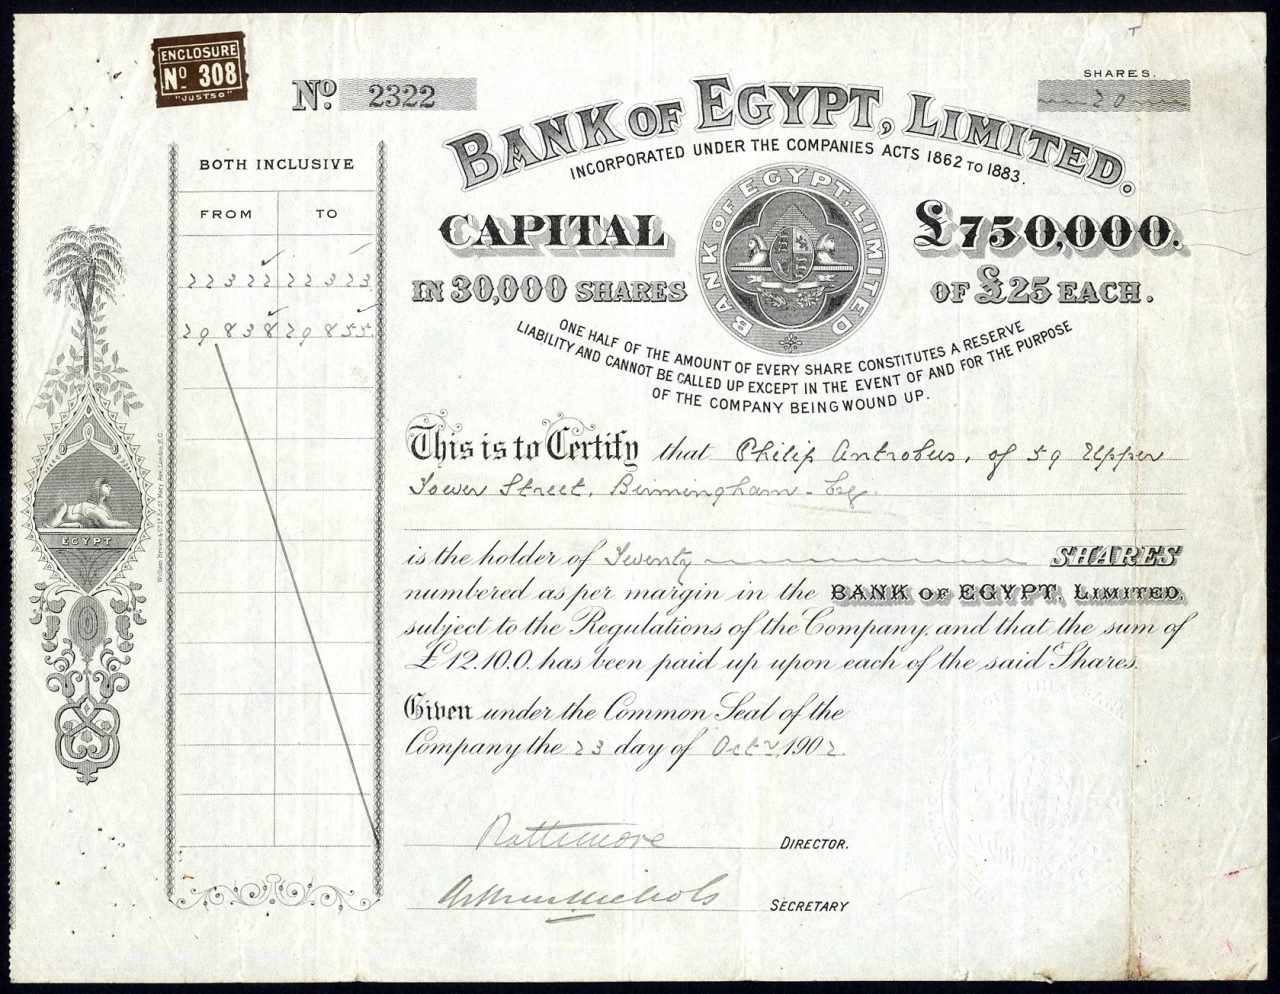 ENCLOSURE
No 308
"JUSTSO"
No. 2322
SHARES.
20
BANK OF EGYPT, LIMITED.
INCORPORATED UNDER THE COMPANIES ACTS 1862 TO 1883.
CAPITAL £750,000.
IN 30,000 SHARES OF £25 EACH.
BANK OF EGYPT, LIMITED
ONE HALF OF THE AMOUNT OF EVERY SHARE CONSTITUTES A RESERVE
LIABILITY AND CANNOT BE CALLED UP EXCEPT IN THE EVENT OF AND FOR THE PURPOSE
OF THE COMPANY BEING WOUND UP.
BOTH INCLUSIVE
FROM TO
22322 22323
29838 29855
EGYPT
This is to Certify that Philip Antrobus, of 59 Upper
Tower Street, Birmingham - Esq.
is the holder of Twenty SHARES
numbered as per margin in the BANK OF EGYPT, LIMITED,
subject to the Regulations of the Company, and that the sum of
£12.10.0. has been paid up upon each of the said Shares.
Given under the Common Seal of the
Company the 23 day of Octr, 1902
DIRECTOR.
Arthur Nichols
SECRETARY